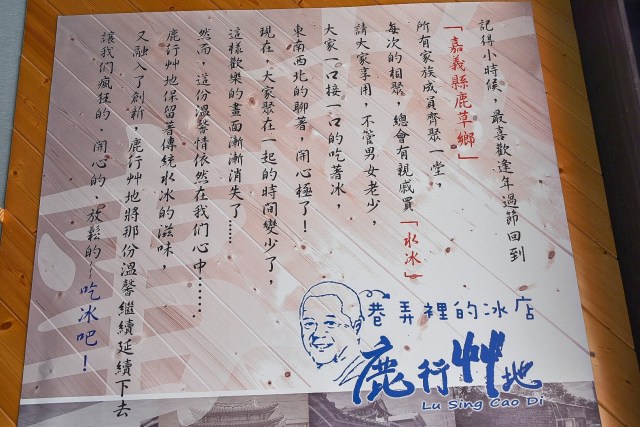 記得小時候，最喜歡逢年過節回到
「嘉義縣鹿草鄉」
所有家族成員齊聚一堂，
每次的相聚，總會有親戚買「水冰」
請大家享用，不管男女老少，
大家一口接一口的吃著冰，
東南西北的聊著，開心極了！
現在，大家聚在一起的時間變少了，
這樣歡樂的畫面漸漸消失了……
然而，這份溫馨情依然在我們心中……
鹿行艸地保留著傳統水冰的滋味，
又融入了創新，鹿行艸地將那份溫馨繼續延續下去
讓我們瘋狂的、開心的、放鬆的…吃冰吧！
巷弄裡的冰店
鹿行艸地
Lu Sing Cao Di